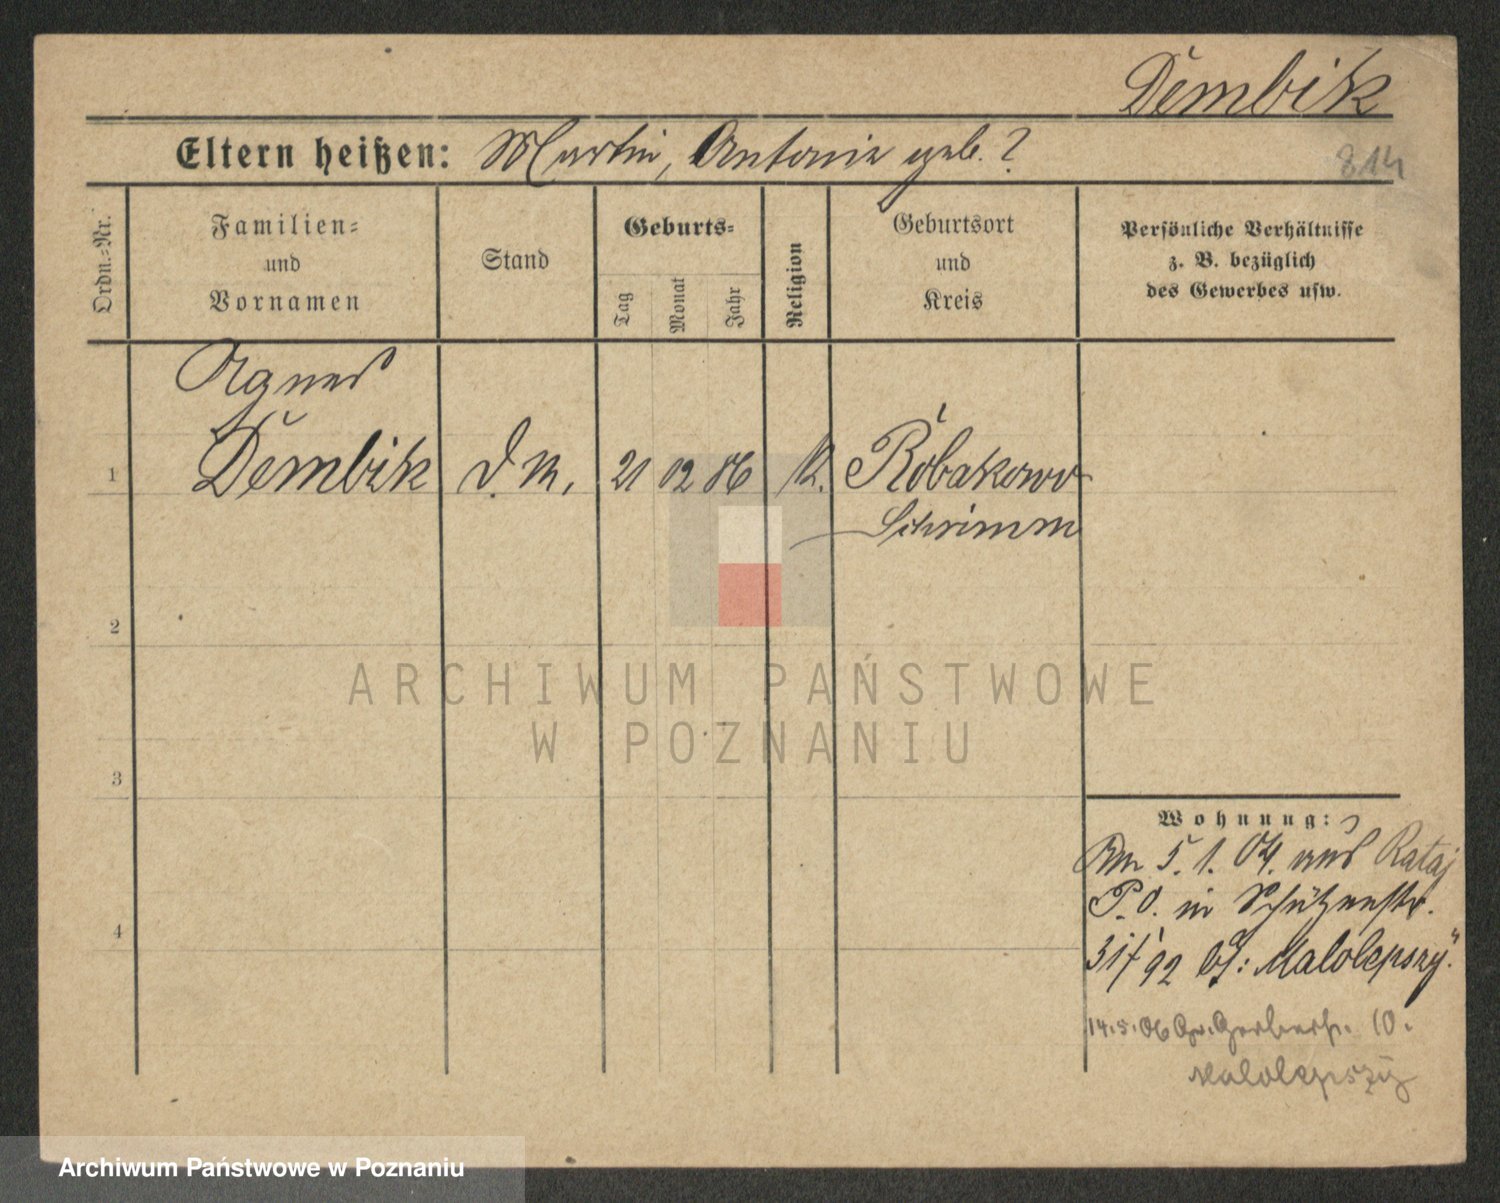 Dembik
Eltern heißen: Martin, Antonie geb. ?
814
Ordn.=Nr.
Familien=
und
Vornamen
Stand
Geburts=
Tag
Monat
Jahr
Religion
Geburtsort
und
Kreis
Persönliche Verhältnisse
z. B. bezüglich
des Gewerbes usw.
Agnes
1 Dembik d. M. 21 02 86 K. Robakowo
Schrimm
2
3
4
Wohnung:
Am 5. 1. 04. aus Rataj
P. O. in Schützenstr.
Malolepszy.
14.5.06 Gr. Gerberstr. 10.
Malolepszy
ARCHIWUM PAŃSTWOWE
W POZNANIU
Archiwum Państwowe w Poznaniu